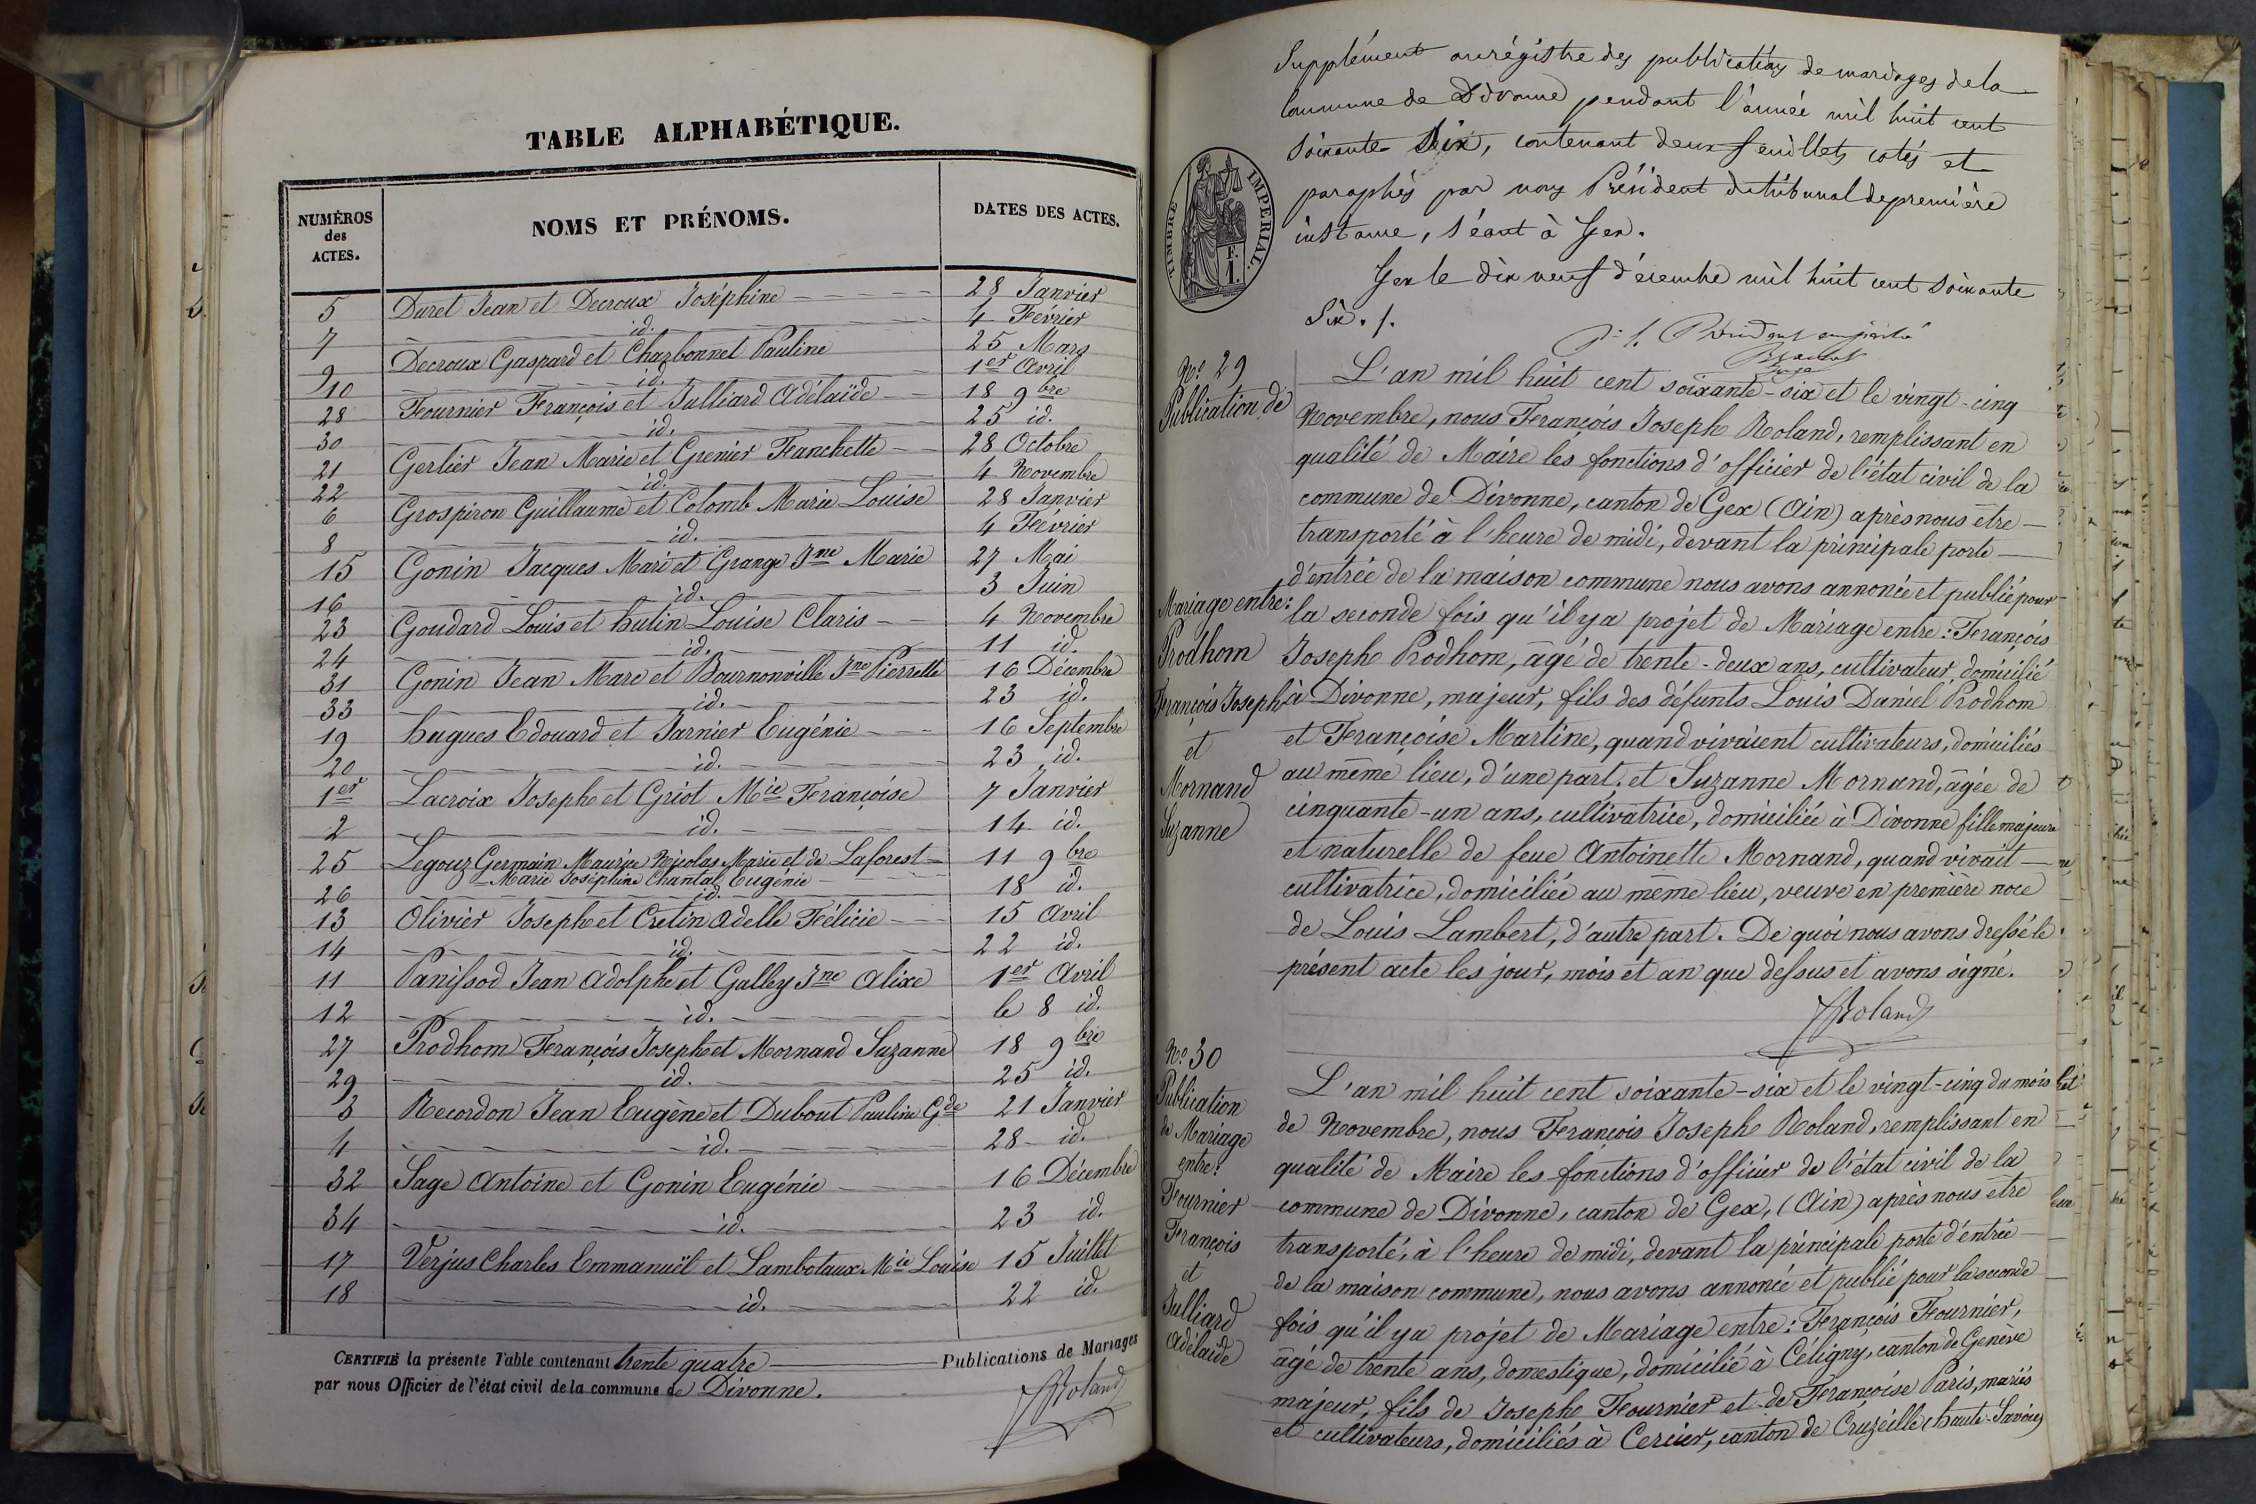 TABLE ALPHABÉTIQUE.
NUMÉROS
des
ACTES.
NOMS ET PRÉNOMS.
DATES DES ACTES.
5 Duret Jean et Decroux Joséphine 28 Janvier
7 id. 4 Février
9 Decroux Gaspard et Charbonnet Pauline 25 Mars
10 id. 1er Avril
28 Fournier François et Julliard Adélaïde 18 9bre
30 id. 25 id.
21 Gerlier Jean Marie et Grenier Franchette 28 Octobre
22 id. 4 Novembre
6 Grospiron Guillaume et Colomb Marie Louise 28 Janvier
8 id. 4 Février
15 Gonin Jacques Marie et Grange Jne Marie 27 Mai
16 id. 3 Juin
23 Goudard Louis et hutin Louise Claris 4 Novembre
24 id. 11 id.
31 Gonin Jean Marc et Bournonville Jne Pierrette 16 Décembre
33 id. 23 id.
19 hugues Edouard et Jarnier Eugénie 16 Septembre
20 id. 23 id.
1er Lacroix Joseph et Griot Mie Françoise 7 Janvier
2 id. 14 id.
25 Legouz Germain Maurice Nicolas Marie et de Laforest 11 9bre
Marie Joséphine Chantal Eugénie
26 id. 18 id.
13 Olivier Joseph et Cretin Adelle Félicie 15 Avril
14 id. 22 id.
11 Panissod Jean Adolphe et Galley Jne Alixe 1er Avril
12 id. le 8 id.
27 Prodhom François Joseph et Mornand Suzanne 18 9bre
29 id. 25 id.
3 Recordon Jean Eugène et Dubout Pauline Gde 21 Janvier
4 id. 28 id.
32 Sage Antoine et Gonin Eugénie 16 Décembre
34 id. 23 id.
17 Verjus Charles Emmanuël et Lambotaux Mie Louise 15 Juillet
18 id. 22 id.
CERTIFIÉ la présente Table contenant trente quatre Publications de Mariages
par nous Officier de l'état civil de la commune de Divonne.
JfRoland
Supplément au régistre des publications de mariages de la
Commune de Divonne pendant l'année mil huit cent
soixante Six, contenant deux feuillets cotés et
paraphés par nous Président du tribunal de première
instance, séant à Gex.
Gex le dix neuf décembre mil huit cent soixante
Six.
TIMBRE IMPERIAL.
F.
1.
No. 29
Publication de
Mariage entre:
Prodhom
François Joseph
et
Mornand
Suzanne
L'an mil huit cent soixante-six et le vingt-cinq
Novembre, nous François Joseph Roland, remplissant en
qualité de Maire les fonctions d'officier de l'état civil de la
commune de Divonne, canton de Gex (Ain) après nous être
transporté à l'heure de midi, devant la principale porte
d'entrée de la maison commune nous avons annoncé et publié pour
la seconde fois qu'il y a projet de Mariage entre: François
Joseph Prodhom, âgé de trente-deux ans, cultivateur, domicilié
à Divonne, majeur, fils des défunts Louis Daniel Prodhom
et Françoise Martine, quand vivaient cultivateurs, domiciliés
au même lieu, d'une part, et Suzanne Mornand, âgée de
cinquante-un ans, cultivatrice, domiciliée à Divonne fille majeure
et naturelle de feue Antoinette Mornand, quand vivait
cultivatrice, domiciliée au même lieu, veuve en première noce
de Louis Lambert, d'autre part. De quoi nous avons dressé le
présent acte les jour, mois et an que dessus et avons signé.
JfRoland
No. 30
Publication
de Mariage
entre:
Fournier
François
et
Julliard
Adélaïde
L'an mil huit cent soixante-six et le vingt-cinq du mois
de Novembre, nous François Joseph Roland, remplissant en
qualité de Maire les fonctions d'officier de l'état civil de la
commune de Divonne, canton de Gex, (Ain) après nous être
transporté, à l'heure de midi, devant la principale porte d'entrée
de la maison commune, nous avons annoncé et publié pour la seconde
fois qu'il y a projet de Mariage entre: François Fournier,
âgé de trente ans, domestique, domicilié à Céligny, canton de Genève
majeur, fils de Joseph Fournier et de Françoise Paris, mariés
et cultivateurs, domiciliés à Cercier, canton de Cruzeille (haute-Savoie)